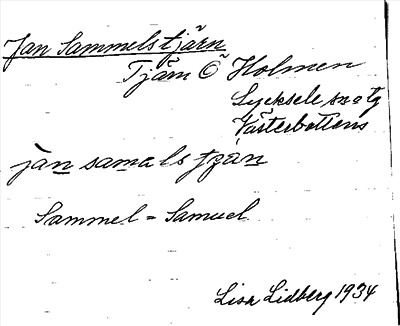 Jan Sammelstjärn
Tjärn Ö Holmen
Lycksele sn o tg
Västerbottens
Sammel = Samuel
Lisa Lidberg 1934